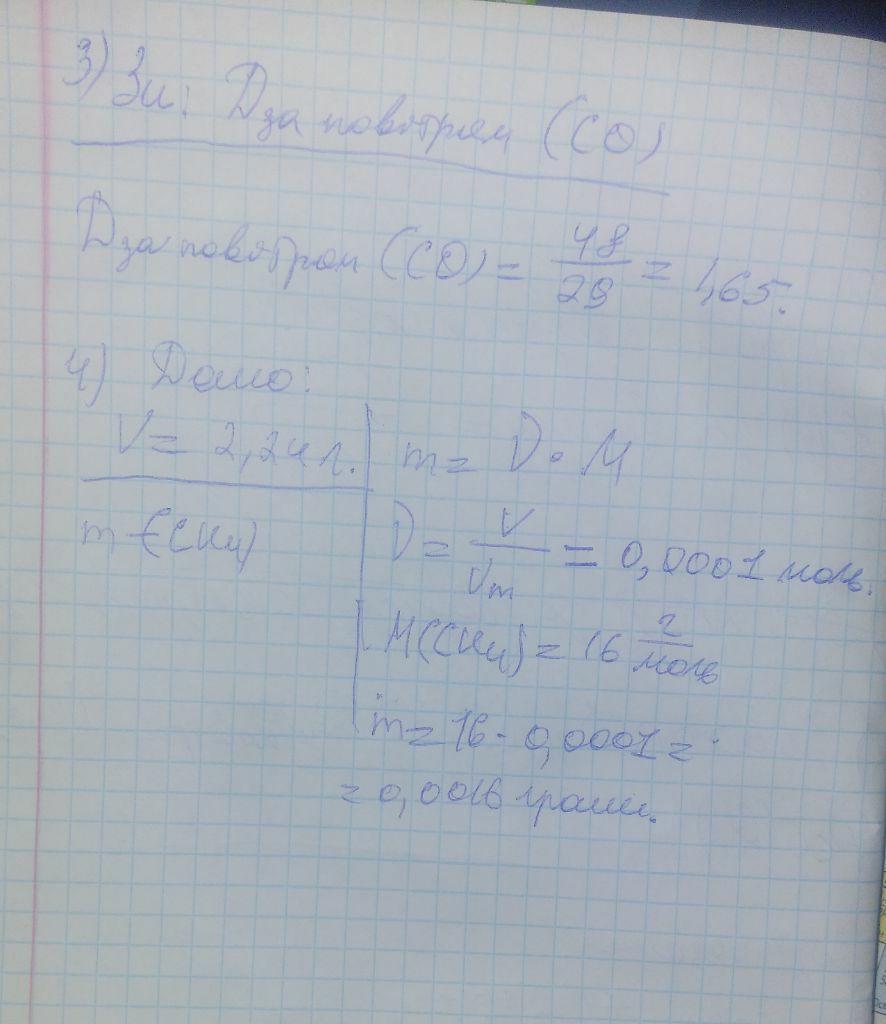 3) Зн: Dза повітрям (CO)
Dза повітрям (CO) = 48/29 = 1,65.
4) Дано:
V = 2,24 л.
m = ν · M
m - (CH₄)
ν = V/Vm = 0,0001 моль.
M(CH₄) = 16 г/моль
m = 16 · 0,0001 =
= 0,0016 грам.